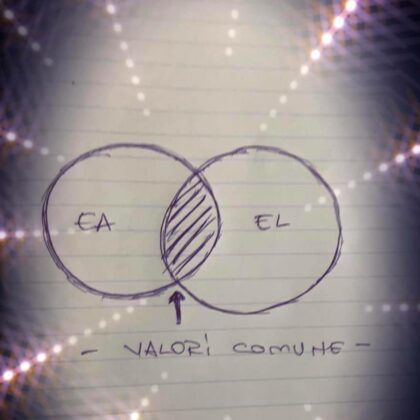 EA EL
- VALORI COMUNE -